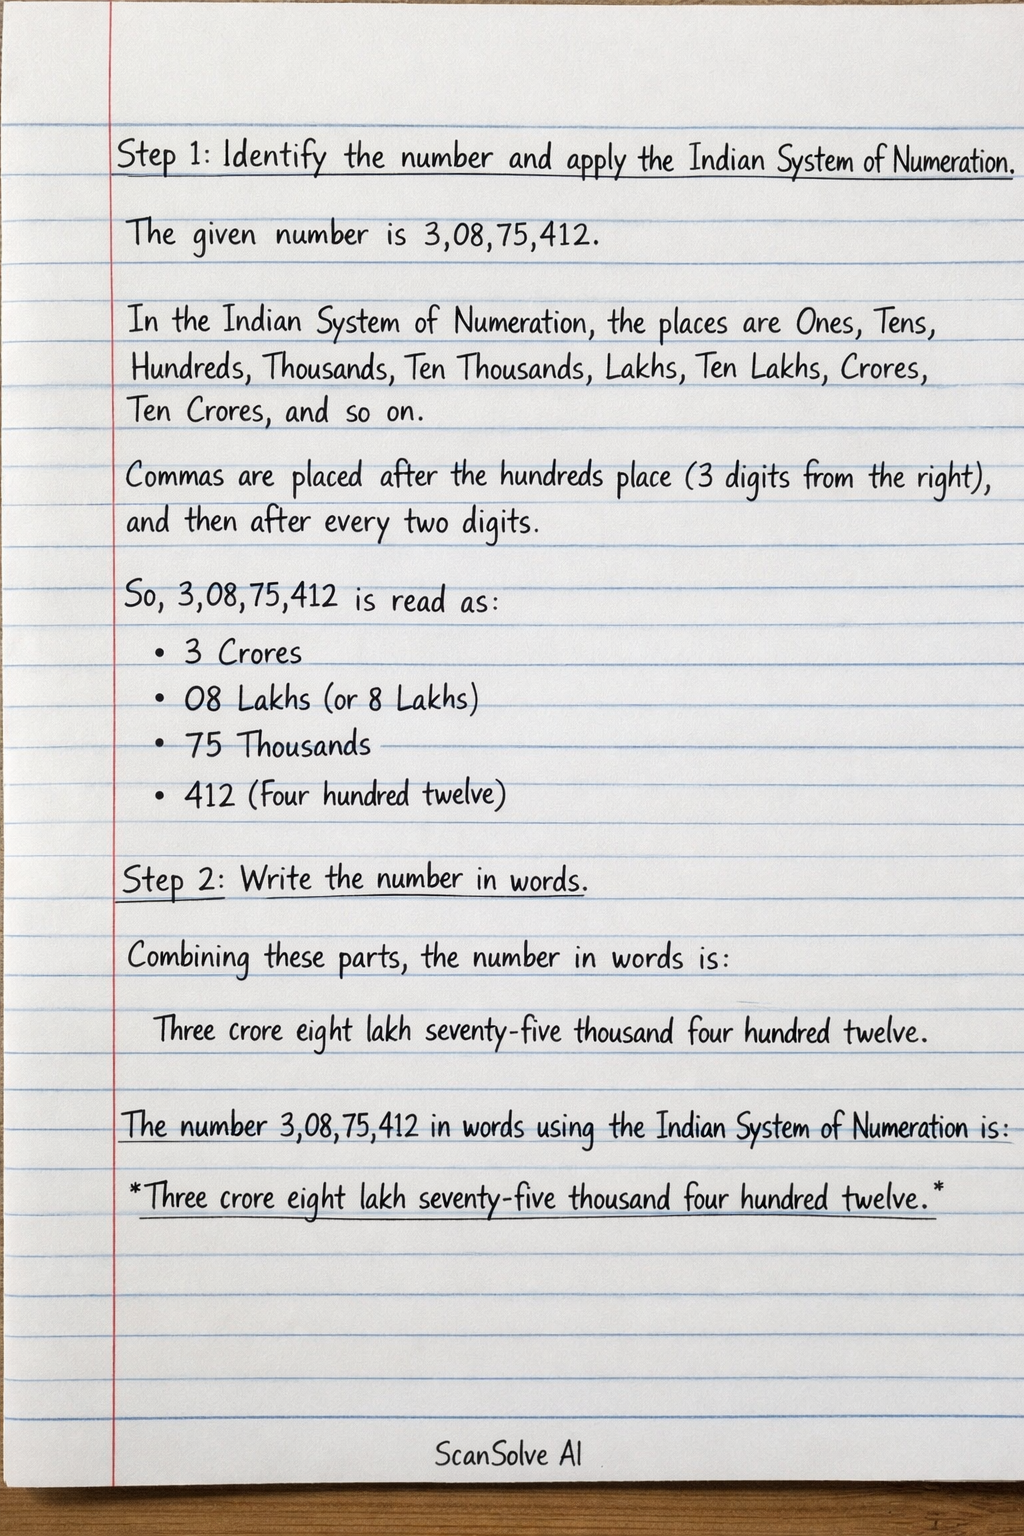 Step 1: Identify the number and apply the Indian System of Numeration.
The given number is 3,08,75,412.
In the Indian System of Numeration, the places are Ones, Tens,
Hundreds, Thousands, Ten Thousands, Lakhs, Ten Lakhs, Crores,
Ten Crores, and so on.
Commas are placed after the hundreds place (3 digits from the right),
and then after every two digits.
So, 3,08,75,412 is read as:
• 3 Crores
• 08 Lakhs (or 8 Lakhs)
• 75 Thousands
• 412 (Four hundred twelve)
Step 2: Write the number in words.
Combining these parts, the number in words is:
Three crore eight lakh seventy-five thousand four hundred twelve.
The number 3,08,75,412 in words using the Indian System of Numeration is:
*Three crore eight lakh seventy-five thousand four hundred twelve.*
ScanSolve AI